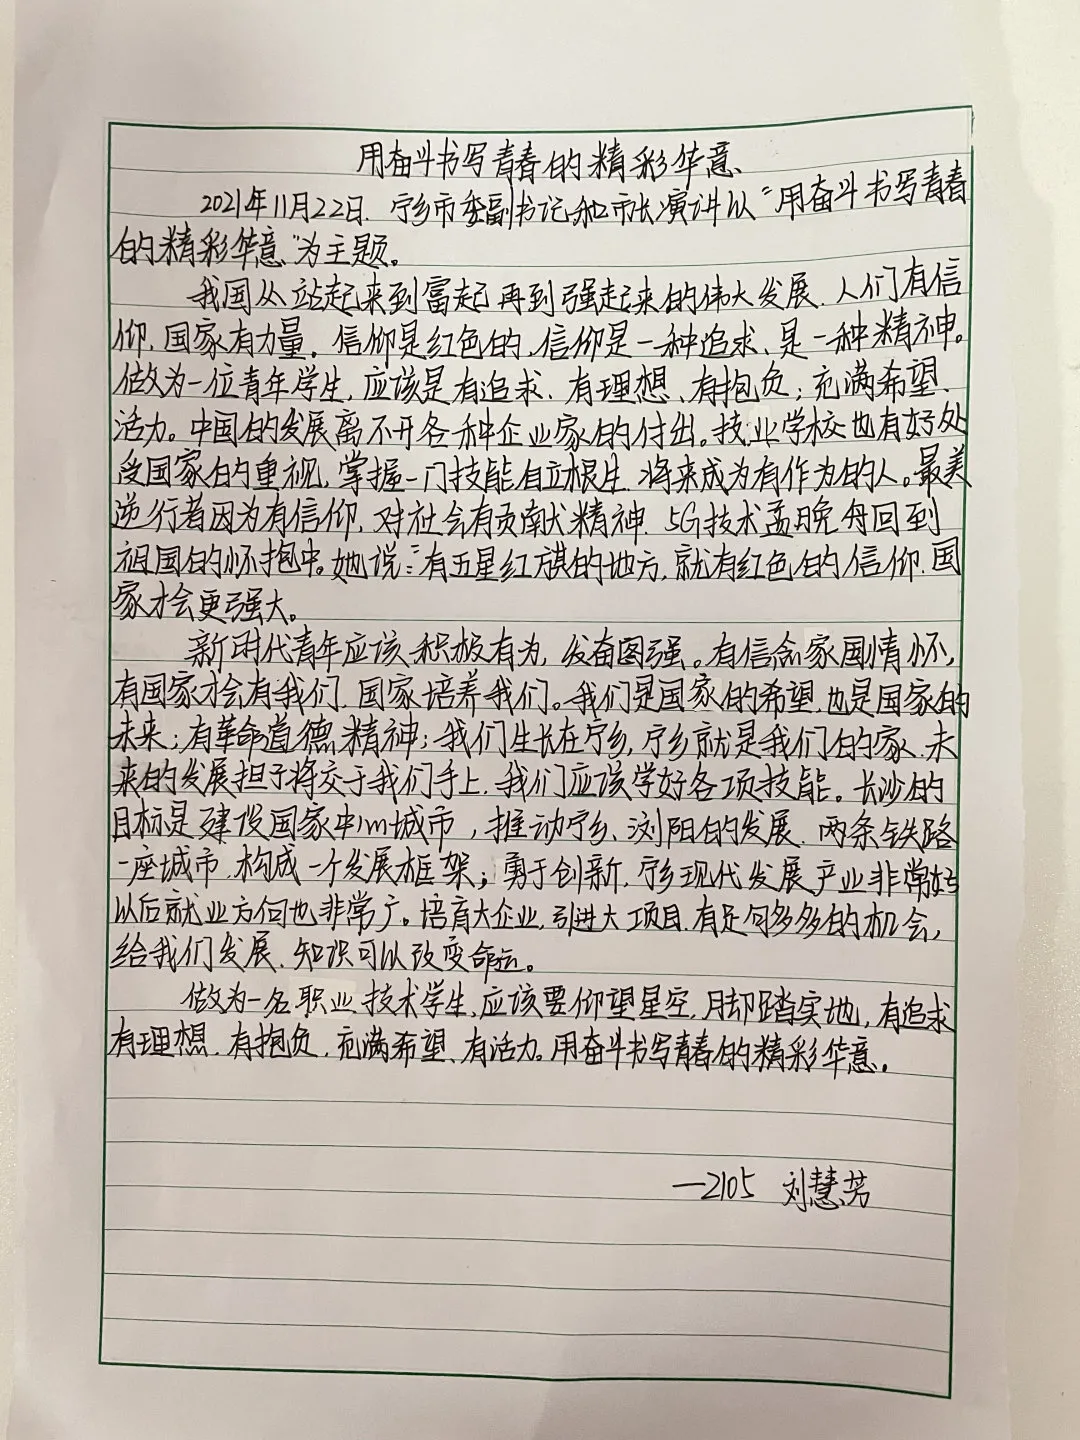 用奋斗书写青春的精彩华意
2021年11月22日.宁乡市委副书记和市长演讲以“用奋斗书写青春
的精彩华意”为主题。
我国从站起来到富起再到强起来的伟大发展.人们有信
仰.国家有力量。信仰是红色的.信仰是一种追求、是一种精神。
做为一位青年学生,应该是有追求、有理想、有抱负;充满希望、
活力。中国的发展离不开各种企业家的付出。技业学校也有好处
受国家的重视,掌握一门技能自立根生.将来成为有作为的人。最美
逆行者因为有信仰,对社会有贡献精神.5G技术孟晚舟回到
祖国的怀抱中。她说:“有五星红旗的地方,就有红色的信仰.国
家才会更强大。
新时代青年应该积极有为,发奋图强。有信念家国情怀,
有国家才会有我们.国家培养我们。我们是国家的希望,也是国家的
未来;有革命道德精神;我们生长在宁乡,宁乡就是我们的家.未
来的发展担子将交于我们手上.我们应该学好各项技能。长沙的
目标是建设国家中心城市,推动宁乡、浏阳的发展.两条铁路
一座城市.构成一个发展框架;勇于创新.宁乡现代发展产业非常好
以后就业方向也非常广。培育大企业,引进大项目.有足句多多的机会,
给我们发展.知识可以改变命运。
做为一名职业技术学生,应该要仰望星空,月却踏实地,有追求
有理想.有抱负.充满希望、有活力。用奋斗书写青春的精彩华意。
—2105 刘慧芳